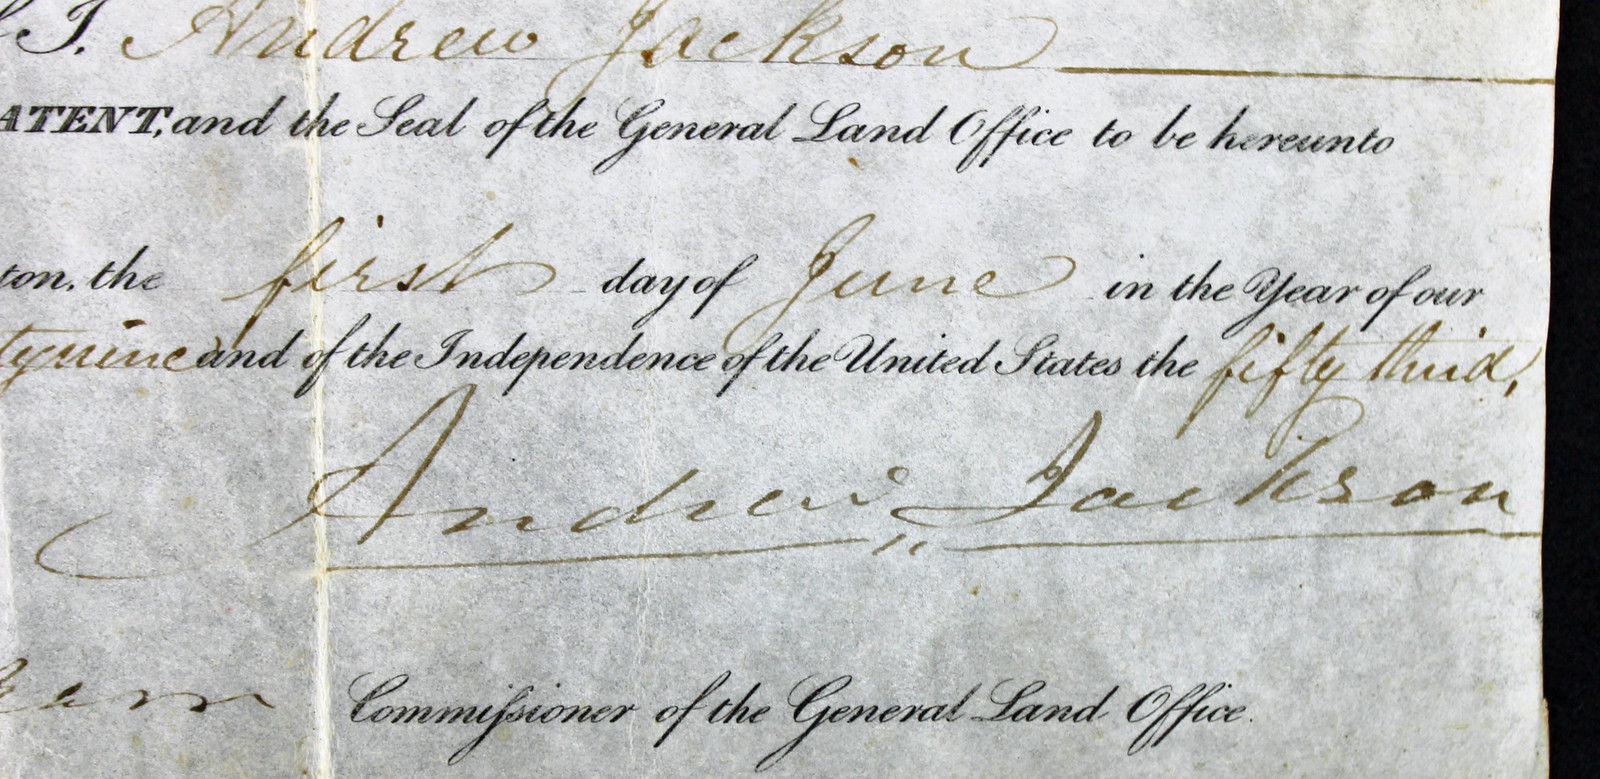 I. Andrew Jackson
ATENT, and the Seal of the General Land Office to be hereunto
ton, the first day of June in the Year of our
ty nine and of the Independence of the United States the fifty third,
Andrew Jackson
Commissioner of the General Land Office.